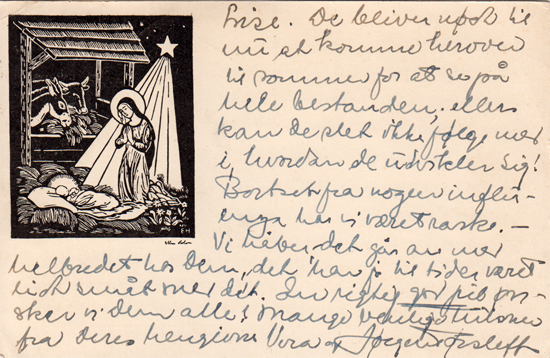 Lise. De bliver nødt til
nu at komme herover
til sommer for at se på
hele bestanden, ellers
kan de slet ikke følge med
i, hvordan de udvikler sig!
Bortset fra nogen influ-
enza har vi været raske. –
Vi håber det går an med
helbredet hos Dem, det har jo til tider været
lidt småt med det. En rigtig god jul øn-
sker vi dem alle! Mange venlige hilsner
fra deres hengivne Vera og Jørgen
EH